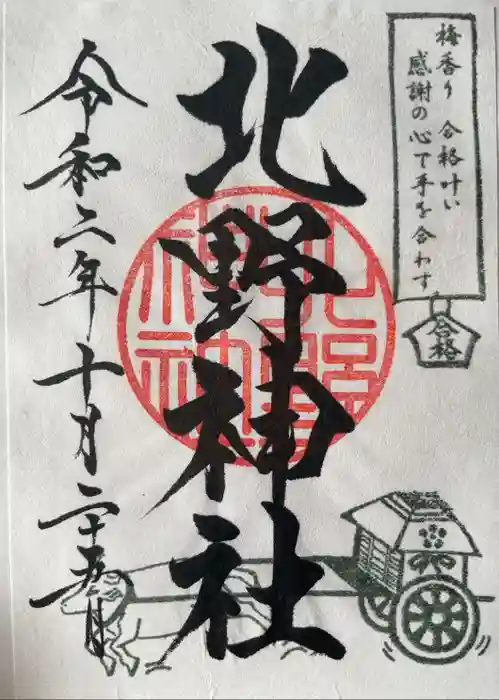 梅香り 合格叶い
感謝の心で手を合わす
合格
北野神社
令和二年十月二十五日